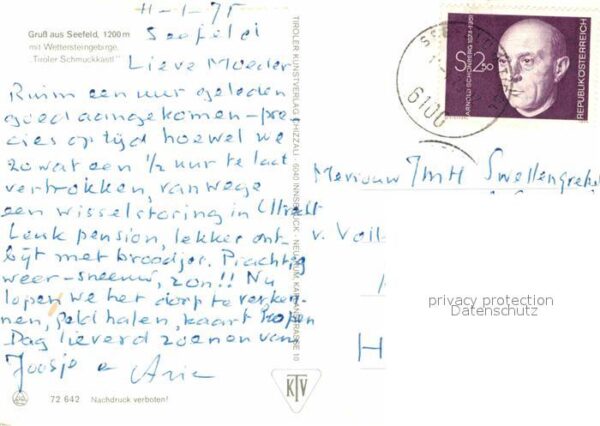 11-1-75
Seefeld
Gruß aus Seefeld, 1200 m
mit Wettersteingebirge,
„Tiroler Schmuckkastl"
Lieve Moeder
Ruim een uur geleden
goed aangekomen - pre
cies op tijd hoewel we
zowat een 1/2 uur te laat
vertrokken, vanwege
een wisselstoring in Utrecht
Leuk pension, lekker ont-
bijt met broodjes. Prachtig
weer - sneeuw, zon!! Nu
lopen we het dorp te verken-
nen, geld halen, kaart kopen
Dag lieverd zoenen van
Joosje & Arie
72 642 Nachdruck verboten!
TIROLER KUNSTVERLAG CHIZZALI · 6040 INNSBRUCK · NEU-RUM, KAPLANSTRASSE 10
KTV
S 2.50
ARNOLD SCHÖNBERG 1874-1951
REPUBLIK ÖSTERREICH
6100
Mevrouw Swellengrebel
v. Voll
H
privacy protection
Datenschutz